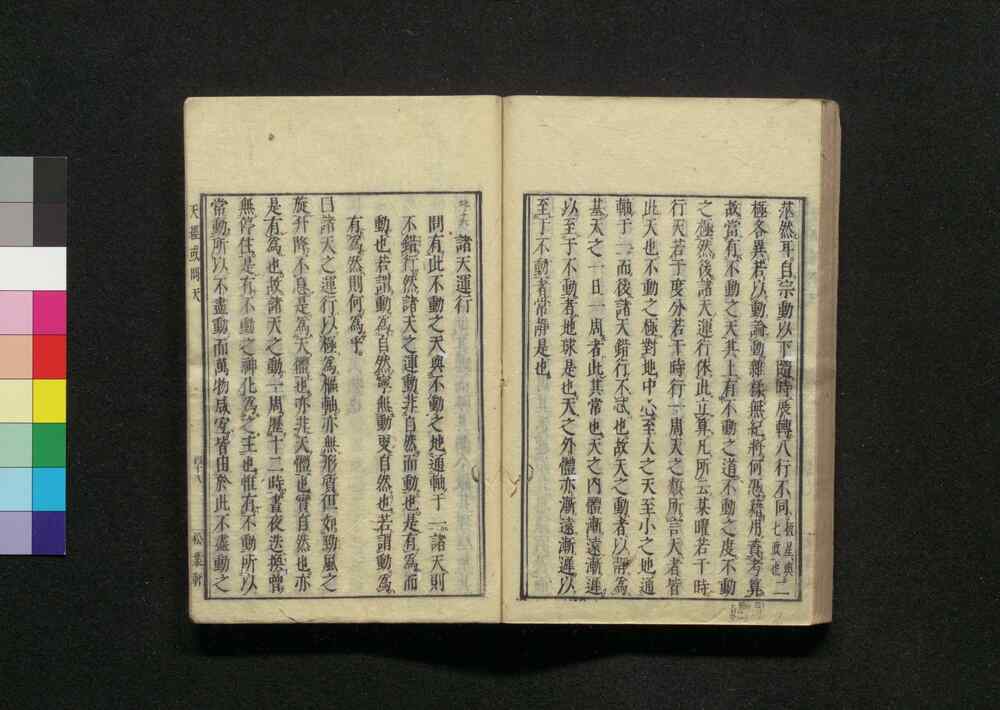 茫然耳自宗動以下隨時展轉八行不同恒星與七政也二
極各異若以動論動雜樣無紀將何憑藉用賚考算
故當有不動之天其上有不動之道不動之度不動
之極然後諸天運行依此立算凡所云某曜若干時
行天若干度分若干時行一周天之類所言天者皆
此天也不動之極對地中心至大之天至小之地通
軸于一而後諸天錯行不忒也故天之動者以靜為
基天之一日一周者此其常也天之內體漸遠漸遲
以至于不動者地球是也天之外體亦漸遠漸遲以
至于不動者常靜是也
諸天運行
問有此不動之天與不動之地通軸于一諸天則
不錯行然諸天之運動非自然而動也是有為而
動也若謂動為自然寧無動更自然也若謂動為
有為然則何為乎
曰諸天之運行以極為樞軸亦無形質但如勁風之
旋升降不息是為天體也亦非天體也實自然也亦
是有為也故諸天之動一周歷十二時晝夜迭換曾
無停住是有不動之神化為之主也惟有不動所以
常動所以不盡動而萬物咸安皆由於此不盡動之
天經或問天
松葉軒